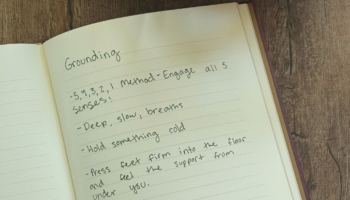 Grounding
-5,4,3,2,1 Method-Engage all 5
senses!
-Deep, slow, breaths
-Hold something cold
-Press feet firm into the floor
and feel the support from
under you.